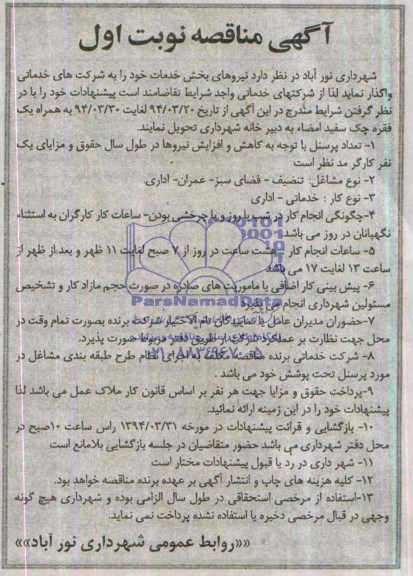 آگهی مناقصه نوبت اول
شهرداری نور آباد در نظر دارد نیروهای بخش خدمات خود را به شرکت های خدماتی
واگذار نماید لذا از شرکتهای خدماتی واجد شرایط تقاضامند است پیشنهادات خود را با در
نظر گرفتن شرایط مندرج در این آگهی از تاریخ ۹۴/۰۳/۲۰ لغایت ۹۴/۰۳/۳۰ به همراه یک
فقره چک سفید امضاء به دبیر خانه شهرداری تحویل نمایند.
۱- تعداد پرسنل با توجه به کاهش و افزایش نیروها در طول سال حقوق و مزایای یک
نفر کارگر مد نظر است
۲- نوع مشاغل: تنضیف - فضای سبز- عمران- اداری.
۳- نوع کار : خدماتی - اداری
۴-چگونگی انجام کار در شب یا روز و یا چرخشی بودن- ساعات کار کارگران به استثناء
نگهبانان در روز می باشد.
۵- ساعات انجام کار : هشت ساعت در روز از ۷ صبح لغایت ۱۱ ظهر و بعد از ظهر از
ساعت ۱۳ لغایت ۱۷ می باشد
۶- پیش بینی کار اضافی یا ماموریت های صادره در صورت حجم مازاد کار و تشخیص
مسئولین شهرداری انجام می پذیرد
۷-حضوران مدیران عامل یا نمایندگان تام الاختیار شرکت برنده بصورت تمام وقت در
محل جهت نظارت بر عملکرد شرکت از طریق دفتر مربوط صورت پذیرد.
۸- شرکت خدماتی برنده مناقصه مکلف به اجرای نظام طرح طبقه بندی مشاغل در
مورد پرسنل تحت پوشش خود می باشد .
۹-پرداخت حقوق و مزایا جهت هر نفر بر اساس قانون کار ملاک عمل می باشد لذا
پیشنهادات خود را در این زمینه ارائه نمائید.
۱۰- بازگشایی و قرائت پیشنهادات در مورخه ۱۳۹۴/۰۳/۳۱ راس ساعت ۱۰صبح در
محل دفتر شهرداری می باشد حضور متقاضیان در جلسه بازگشایی بلامانع است
۱۱- شهر داری در رد یا قبول پیشنهادات مختار است
۱۲- کلیه هزینه های چاپ و انتشار آگهی بر عهده برنده مناقصه خواهد بود.
۱۳-استفاده از مرخصی استحقاقی در طول سال الزامی بوده و شهرداری هیچ گونه
وجهی در قبال مرخصی ذخیره یا استفاده نشده پرداخت نمی نماید.
««روابط عمومی شهرداری نور آباد»»
ParsNamadData
۰۲۱-۸۸۳۴۹۶۷۰-۵